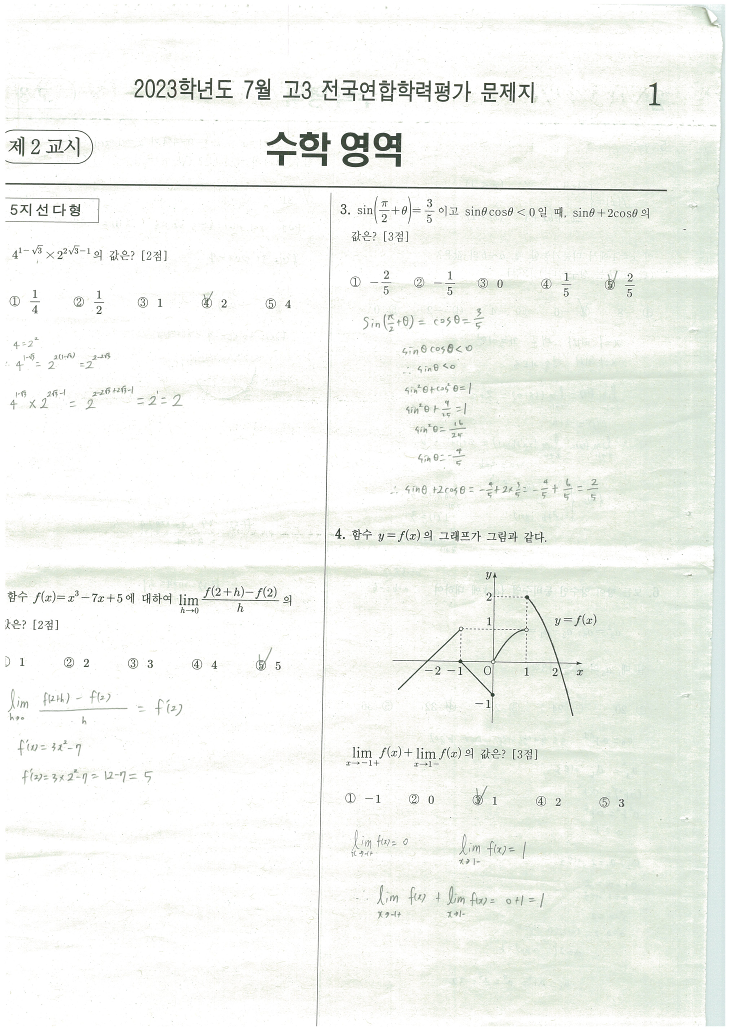 2023학년도 7월 고3 전국연합학력평가 문제지
1
제 2 교시
수학 영역
5지선다형
4^{1-√3}×2^{2√3-1}의 값은? [2점]
① 1/4 ② 1/2 ③ 1 ④ 2 ⑤ 4
4=2²
4^{1-√3} = 2^{2(1-√3)} = 2^{2-2√3}
4^{1-√3} × 2^{2√3-1} = 2^{2-2√3+2√3-1} = 2¹ = 2
함수 f(x)=x³-7x+5에 대하여 lim_{h→0} (f(2+h)-f(2))/h 의
값은? [2점]
① 1 ② 2 ③ 3 ④ 4 ⑤ 5
lim_{h→0} (f(2+h) - f(2))/h = f'(2)
f'(x) = 3x²-7
f'(2) = 3×2²-7 = 12-7 = 5
3. sin(π/2+θ)=3/5 이고 sinθcosθ<0일 때, sinθ+2cosθ의
값은? [3점]
① -2/5 ② -1/5 ③ 0 ④ 1/5 ⑤ 2/5
sin(π/2+θ) = cosθ = 3/5
sinθcosθ<0
∴ sinθ<0
sin²θ+cos²θ=1
sin²θ+9/25=1
sin²θ=16/25
sinθ=-4/5
∴ sinθ+2cosθ = -4/5+2×3/5 = -4/5+6/5 = 2/5
4. 함수 y=f(x)의 그래프가 그림과 같다.
y
2
1
y=f(x)
-2 -1 O 1 2 x
-1
lim_{x→-1+} f(x)+lim_{x→1-} f(x)의 값은? [3점]
① -1 ② 0 ③ 1 ④ 2 ⑤ 3
lim_{x→-1+} f(x)=0 lim_{x→1-} f(x)=1
∴ lim_{x→-1+} f(x) + lim_{x→1-} f(x) = 0+1=1